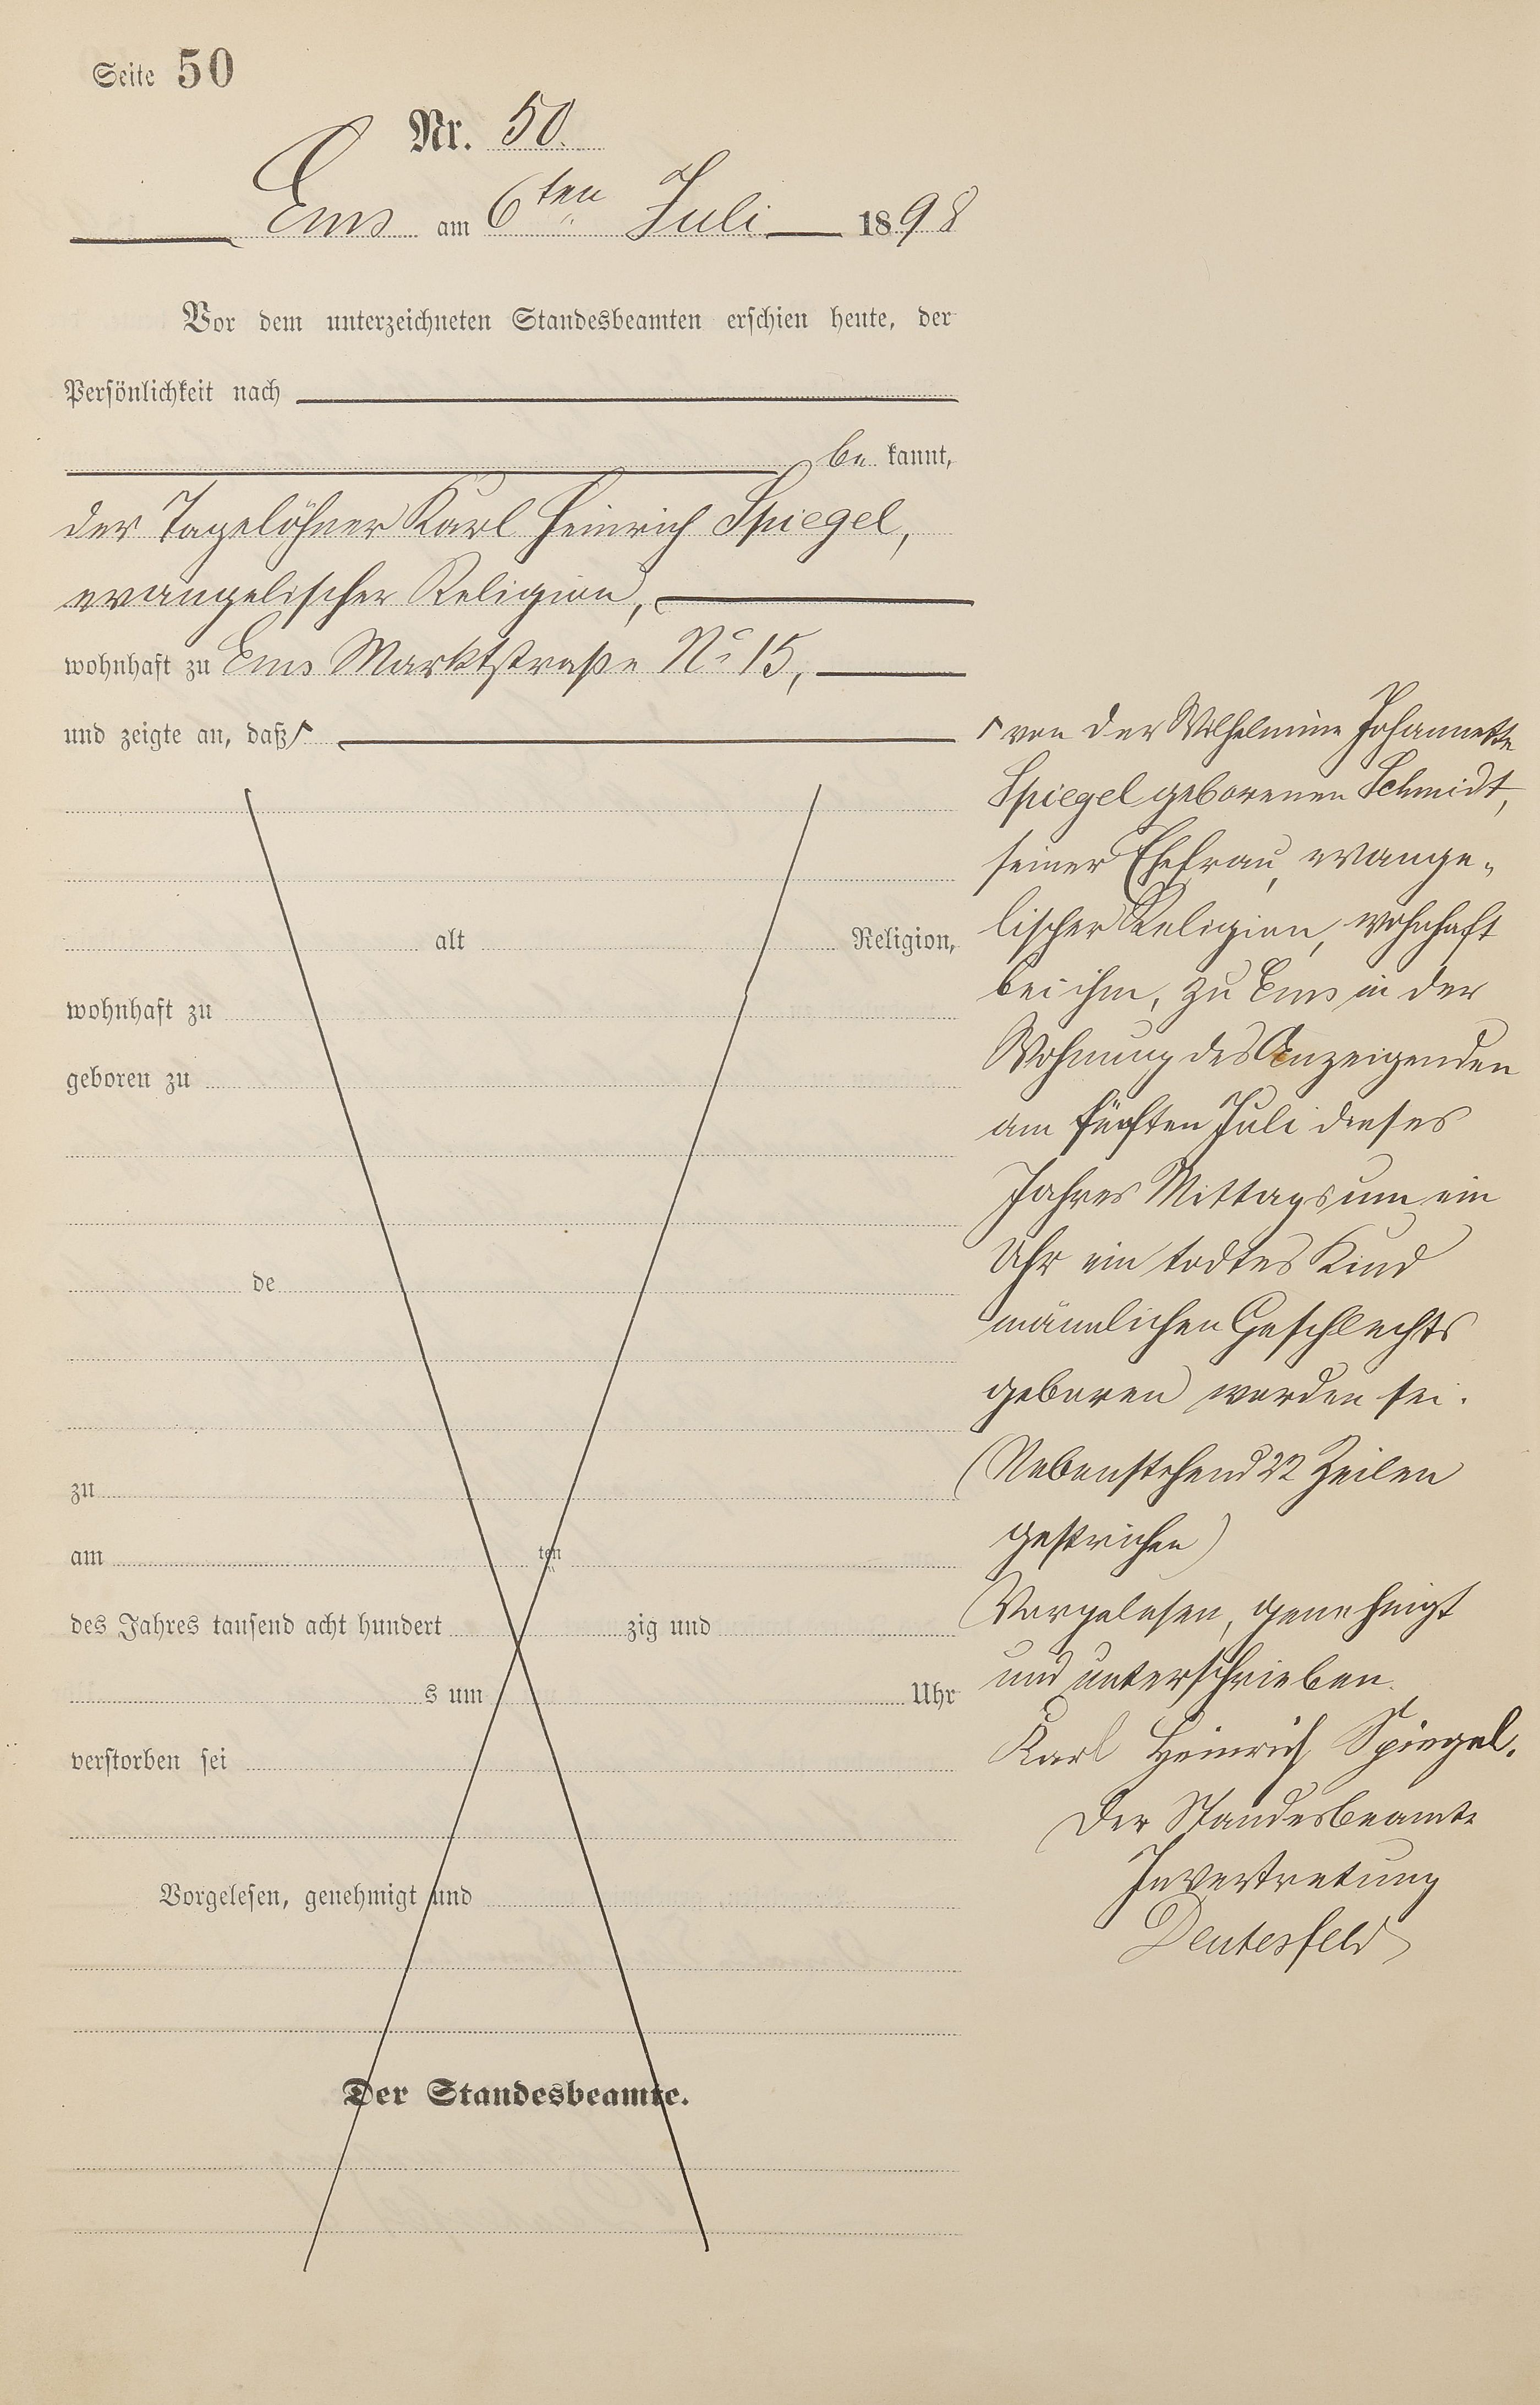 Seite 50
Nr. 50.
Ems am 6ten Juli 1898
Vor dem unterzeichneten Standesbeamten erschien heute, der
Persönlichkeit nach
be kannt,
der Tagelöhner Karl Heinrich Spiegel,
evangelischer Religion,
wohnhaft zu Ems Marktstraße No 15,
und zeigte an, daß
alt Religion,
wohnhaft zu
geboren zu
de
zu
am ten
des Jahres tausend acht hundert zig und
s um Uhr
verstorben sei
Vorgelesen, genehmigt und
Der Standesbeamte.
von der Wilhelmine Johannette
Spiegel geborenen Schmidt,
seiner Ehefrau, evange-
lischer Religion, wohnhaft
bei ihm, zu Ems in der
Wohnung des Anzeigenden
am fünften Juli dieses
Jahres Mittags um ein
Uhr ein todtes Kind
männlichen Geschlechts
geboren worden sei.
(Nebenstehend 22 Zeilen
gestrichen)
Vorgelesen, genehmigt
und unterschrieben.
Karl Heinrich Spiegel.
Der Standesbeamte
In Vertretung
Deutesfeld